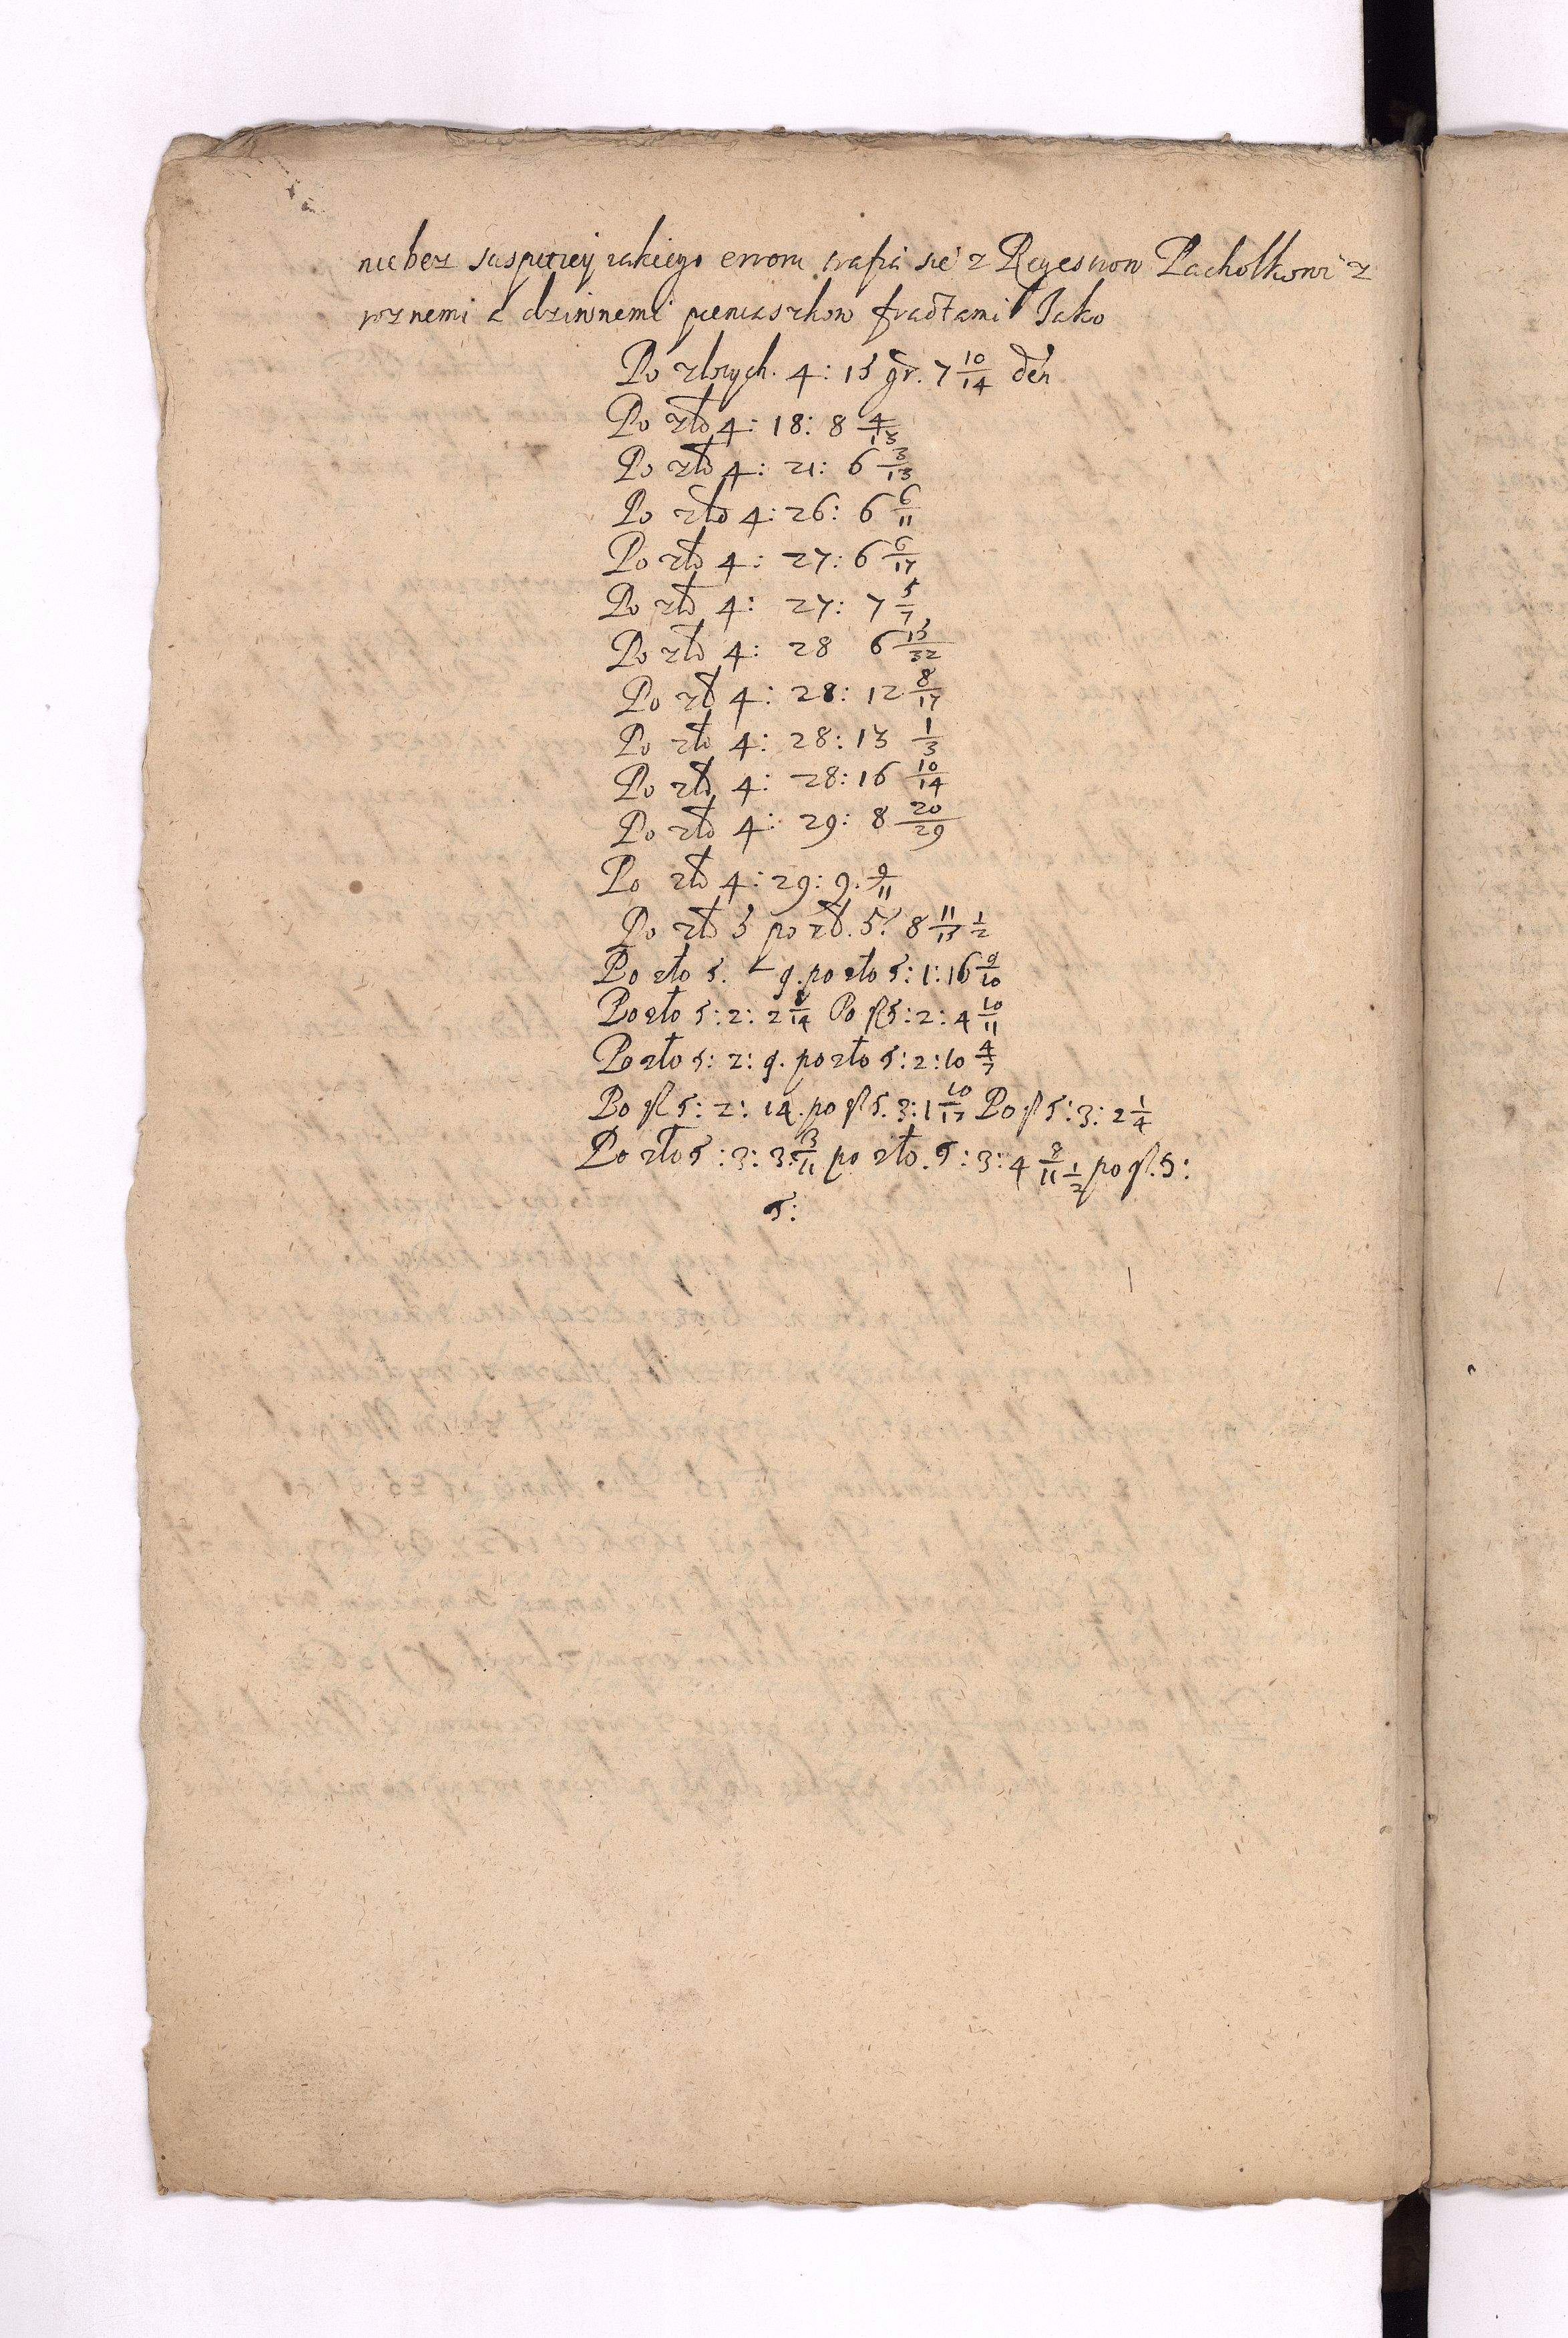 niebez suspitiey iakiego erroru trafia się z Regestrow Pachołkowi z
roznemi a dziwnemi pieniaszkow fractami Jako
Po złotych. 4: 15 gr. 7 10/14 den
Po zło 4: 18: 8 4/13
Po zło 4: 21: 6 3/13
Po zło 4: 26: 6 6/11
Po zło 4: 27: 6 6/17
Po zło 4: 27: 7 5/7
Po zło 4: 28 6 13/32
Po zł 4: 28: 12 8/17
Po zło 4: 28: 13 1/3
Po zło 4: 28: 16 10/14
Po zło 4: 29: 8 20/29
Po zło 4: 29: 9. 9/11
Po zło 5 po zł. 5: 8 11/13 1/2
Po zło 5. – 9. po zło 5: 1: 16 9/10
Po zło 5: 2: 2 8/14 Po fl 5: 2: 4 10/11
Po zło 5: 2: 9. po zło 5: 2: 10 4/7
Po fl 5: 2: 14. po fl 5. 3: 1 10/17 Po fl 5: 3: 2 1/4
Po zło 5: 3: 3: 3/11 po zło. 5: 3: 4 8/11 1/2 po fl. 5:
5: